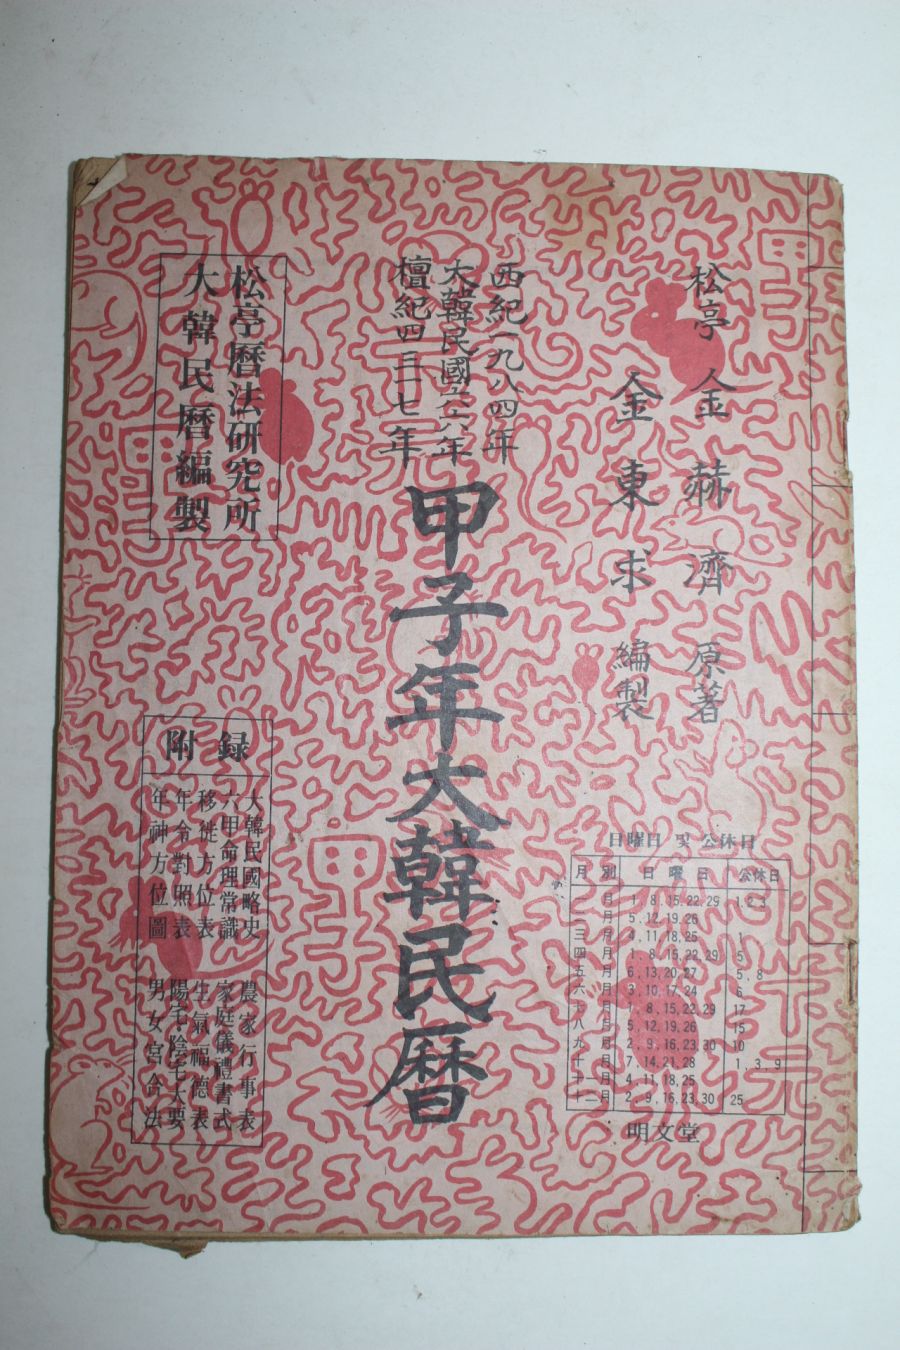 松亭 金赫濟 原著
金東求 編製
西紀一九八四年
大韓民國六六年
檀紀四三一七年
甲子年大韓民曆
松亭曆法研究所
大韓民曆編製
附録
大韓民國略史 農家行事表
六甲命理常識 家庭儀禮書式
移徙方位表 生氣福德表
年令對照表 陽宅·陰宅大要
年神方位圖 男女宮合法
日曜日 및 公休日
月別 日曜日 公休日
一月 1,8,15,22,29 1,2,3
二月 5,12,19,26
三月 4,11,18,25 1
四月 1,8,15,22,29 5
五月 6,13,20,27 5,8
六月 3,10,17,24 6
七月 1,8,15,22,29 17
八月 5,12,19,26 15
九月 2,9,16,23,30 10
十月 7,14,21,28 1,3,9
十一月 4,11,18,25
十二月 2,9,16,23,30 25
明文堂